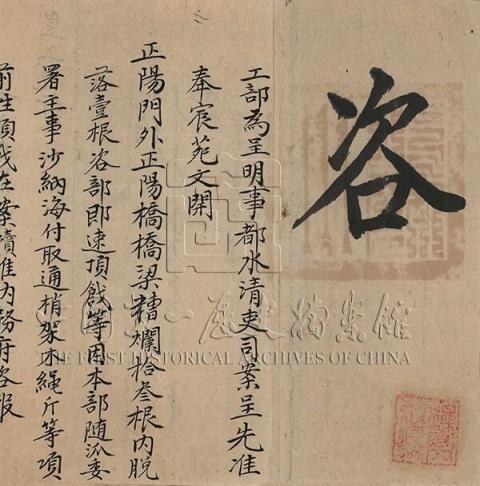 咨
工部為呈明事都水清吏司案呈先准
奉宸苑文開
正陽門外正陽橋橋梁糟爛拾叁根內脫
落壹根咨部即速頂戧等因本部隨派委
署主事沙納海付取通梢架木繩斤等項
前往頂戧在案續准內務府咨報
中國第一歷史檔案館
THE FIRST HISTORICAL ARCHIVES OF CHINA